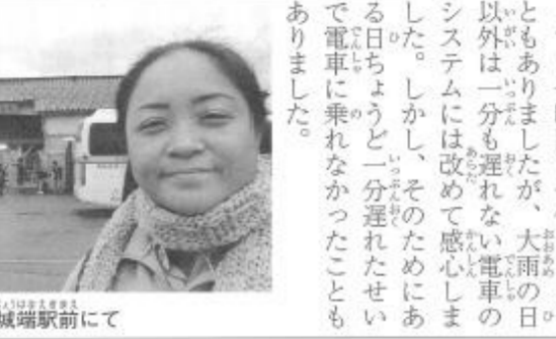 ともありましたが、大雨の日
以外は一分も遅れない電車の
システムには改めて感心しま
した。しかし、そのためにあ
る日ちょうど一分遅れたせい
で電車に乗れなかったことも
ありました。
城端駅前にて